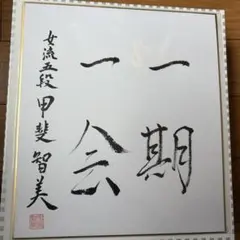 一期
一会
女流五段 甲斐智美